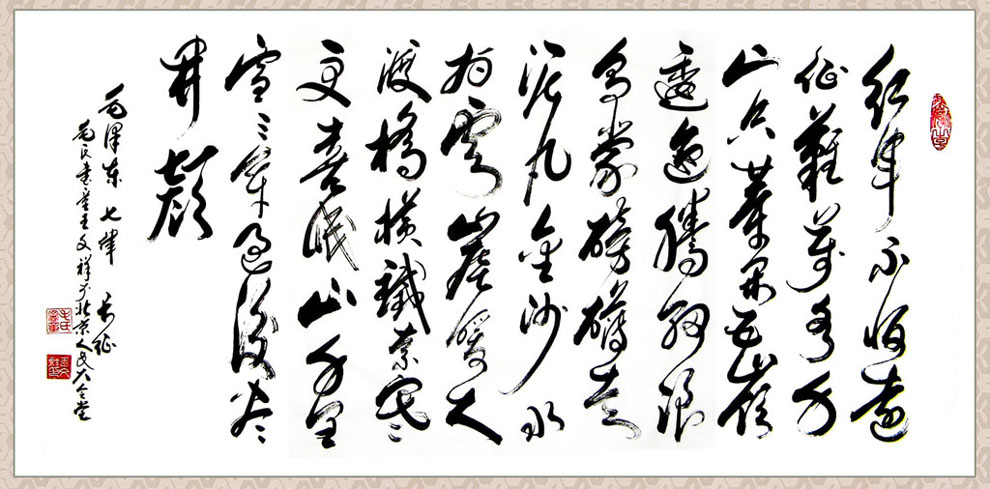 红军不怕远
征難萬水千
山只等闲五嶺
逶迤腾细浪
乌蒙磅礴走
泥丸金沙水
拍雲崖暖大
渡橋横鐵索寒
更喜岷山千里
雪三军过後尽
开颜
毛泽东七律 长征
毛氏书童王文祥于北京人民大会堂